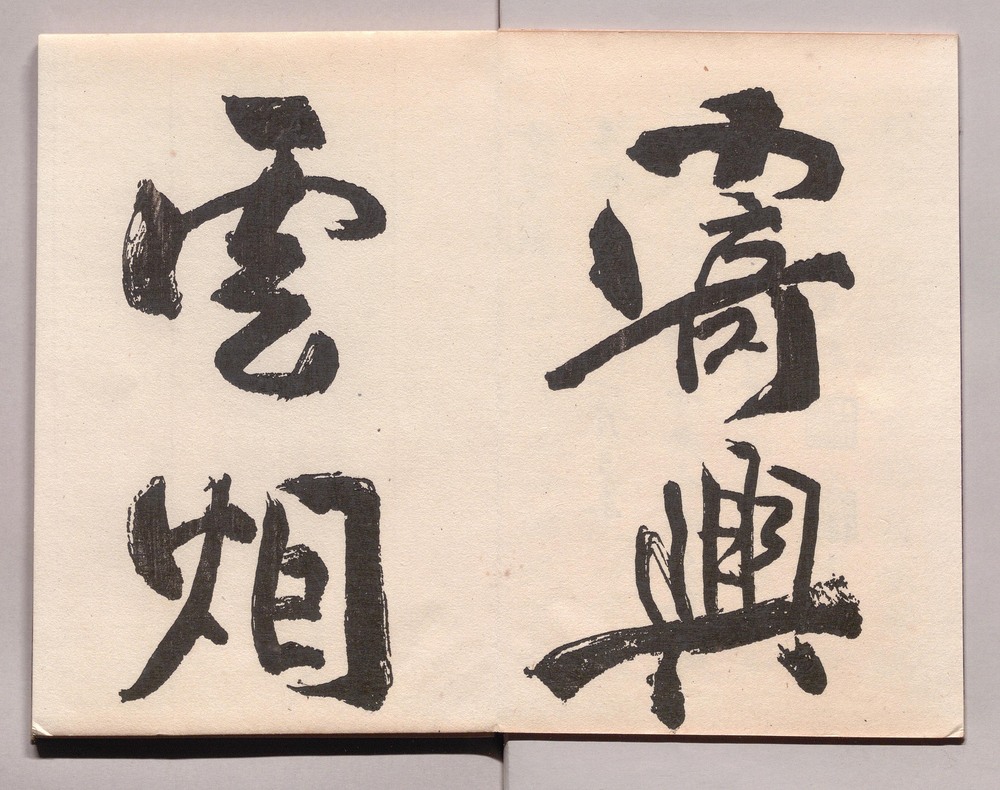 寄興
雲烟